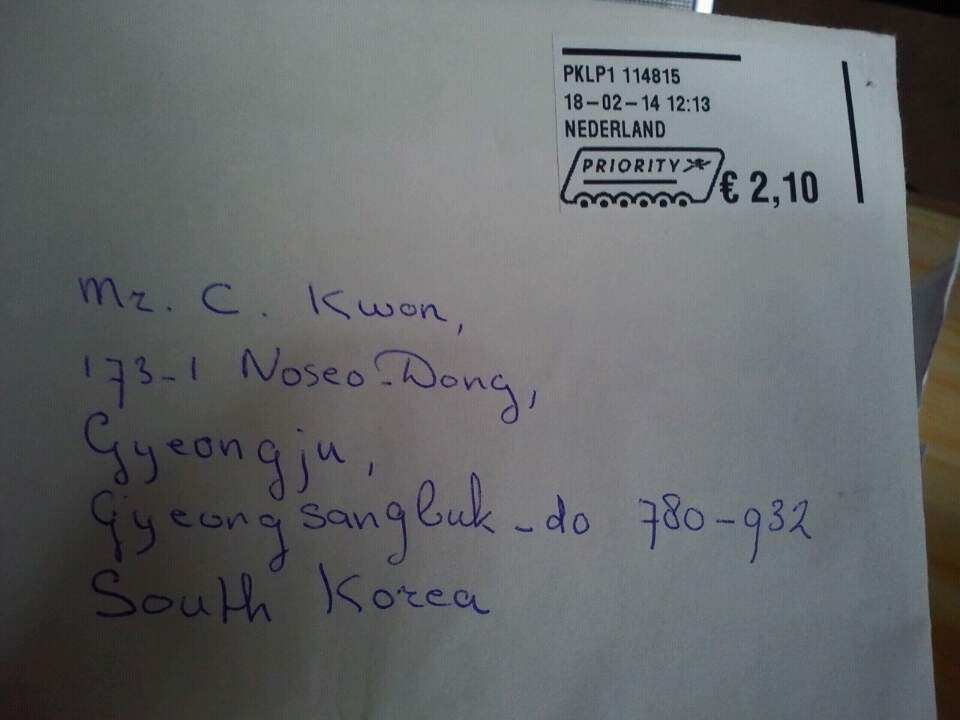 PKLP1 114815
18-02-14 12:13
NEDERLAND
PRIORITY
€ 2,10
Mr. C. Kwon,
173-1 Noseo-Dong,
Gyeongju,
Gyeongsangbuk-do 780-932
South Korea